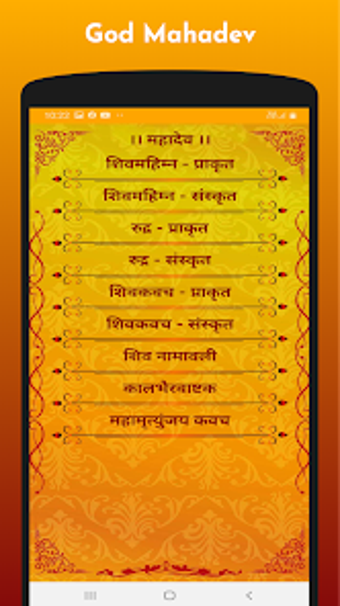 God Mahadev
10:22
।। महादेव ।।
शिवमहिम्न - प्राकृत
शिवमहिम्न - संस्कृत
रुद्र - प्राकृत
रुद्र - संस्कृत
शिवकवच - प्राकृत
शिवकवच - संस्कृत
शिव नामावली
कालभैरवाष्टक
महामृत्युंजय कवच